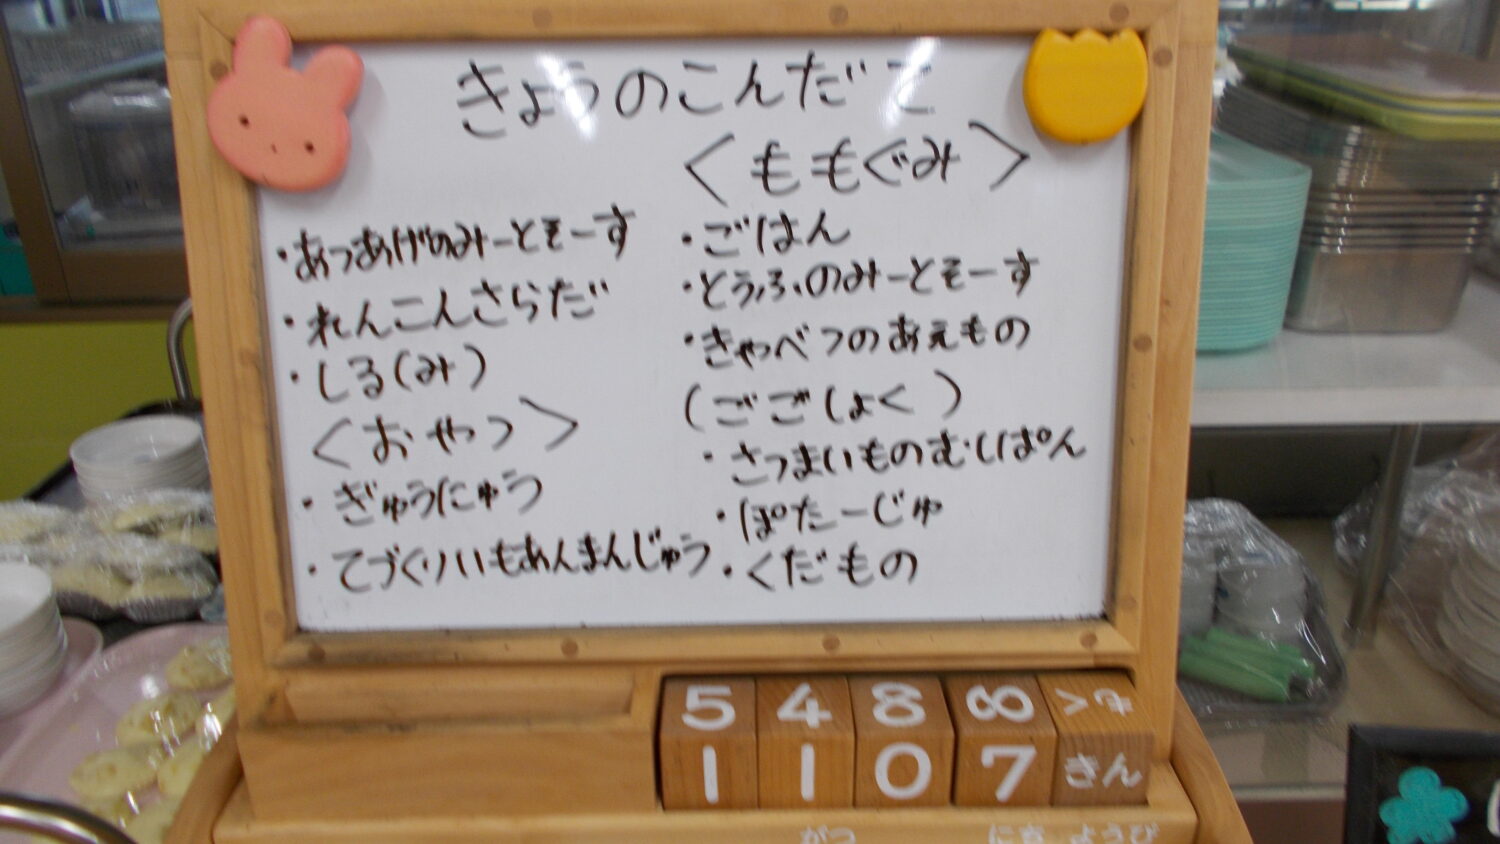 きょうのこんだて
・あつあげのみーとそーす
・れんこんさらだ
・しる(み)
<おやつ>
・ぎゅうにゅう
・てづくりいもあんまんじゅう
<ももぐみ>
・ごはん
・とうふのみーとそーす
・きゃべつのあえもの
(ごごしょく)
・さつまいものむしぱん
・ぽたーじゅ
・くだもの
5 4 8 8
1 1 0 7 きん
がつ にち ようび